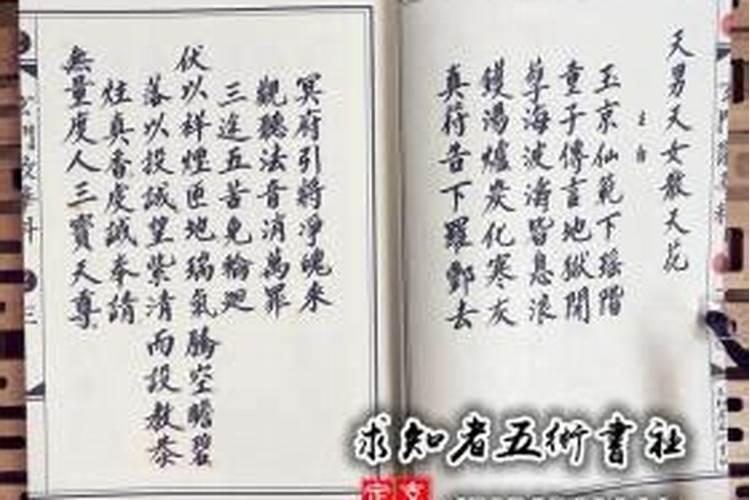 天男天女散天花
玉京仙範下瑤階
童子傳言地獄開
孽海波濤皆息浪
鑊湯爐炭化寒灰
真符告下羅酆去
冥府引將淨魄來
觀聽法音消萬罪
三途五苦免輪迴
伏以祥煙匝地瑞氣騰空瞻碧
落以投誠望紫清而設教恭
炷真香虔誠奉請
無量度人三寶天尊
三
求知者五術書社